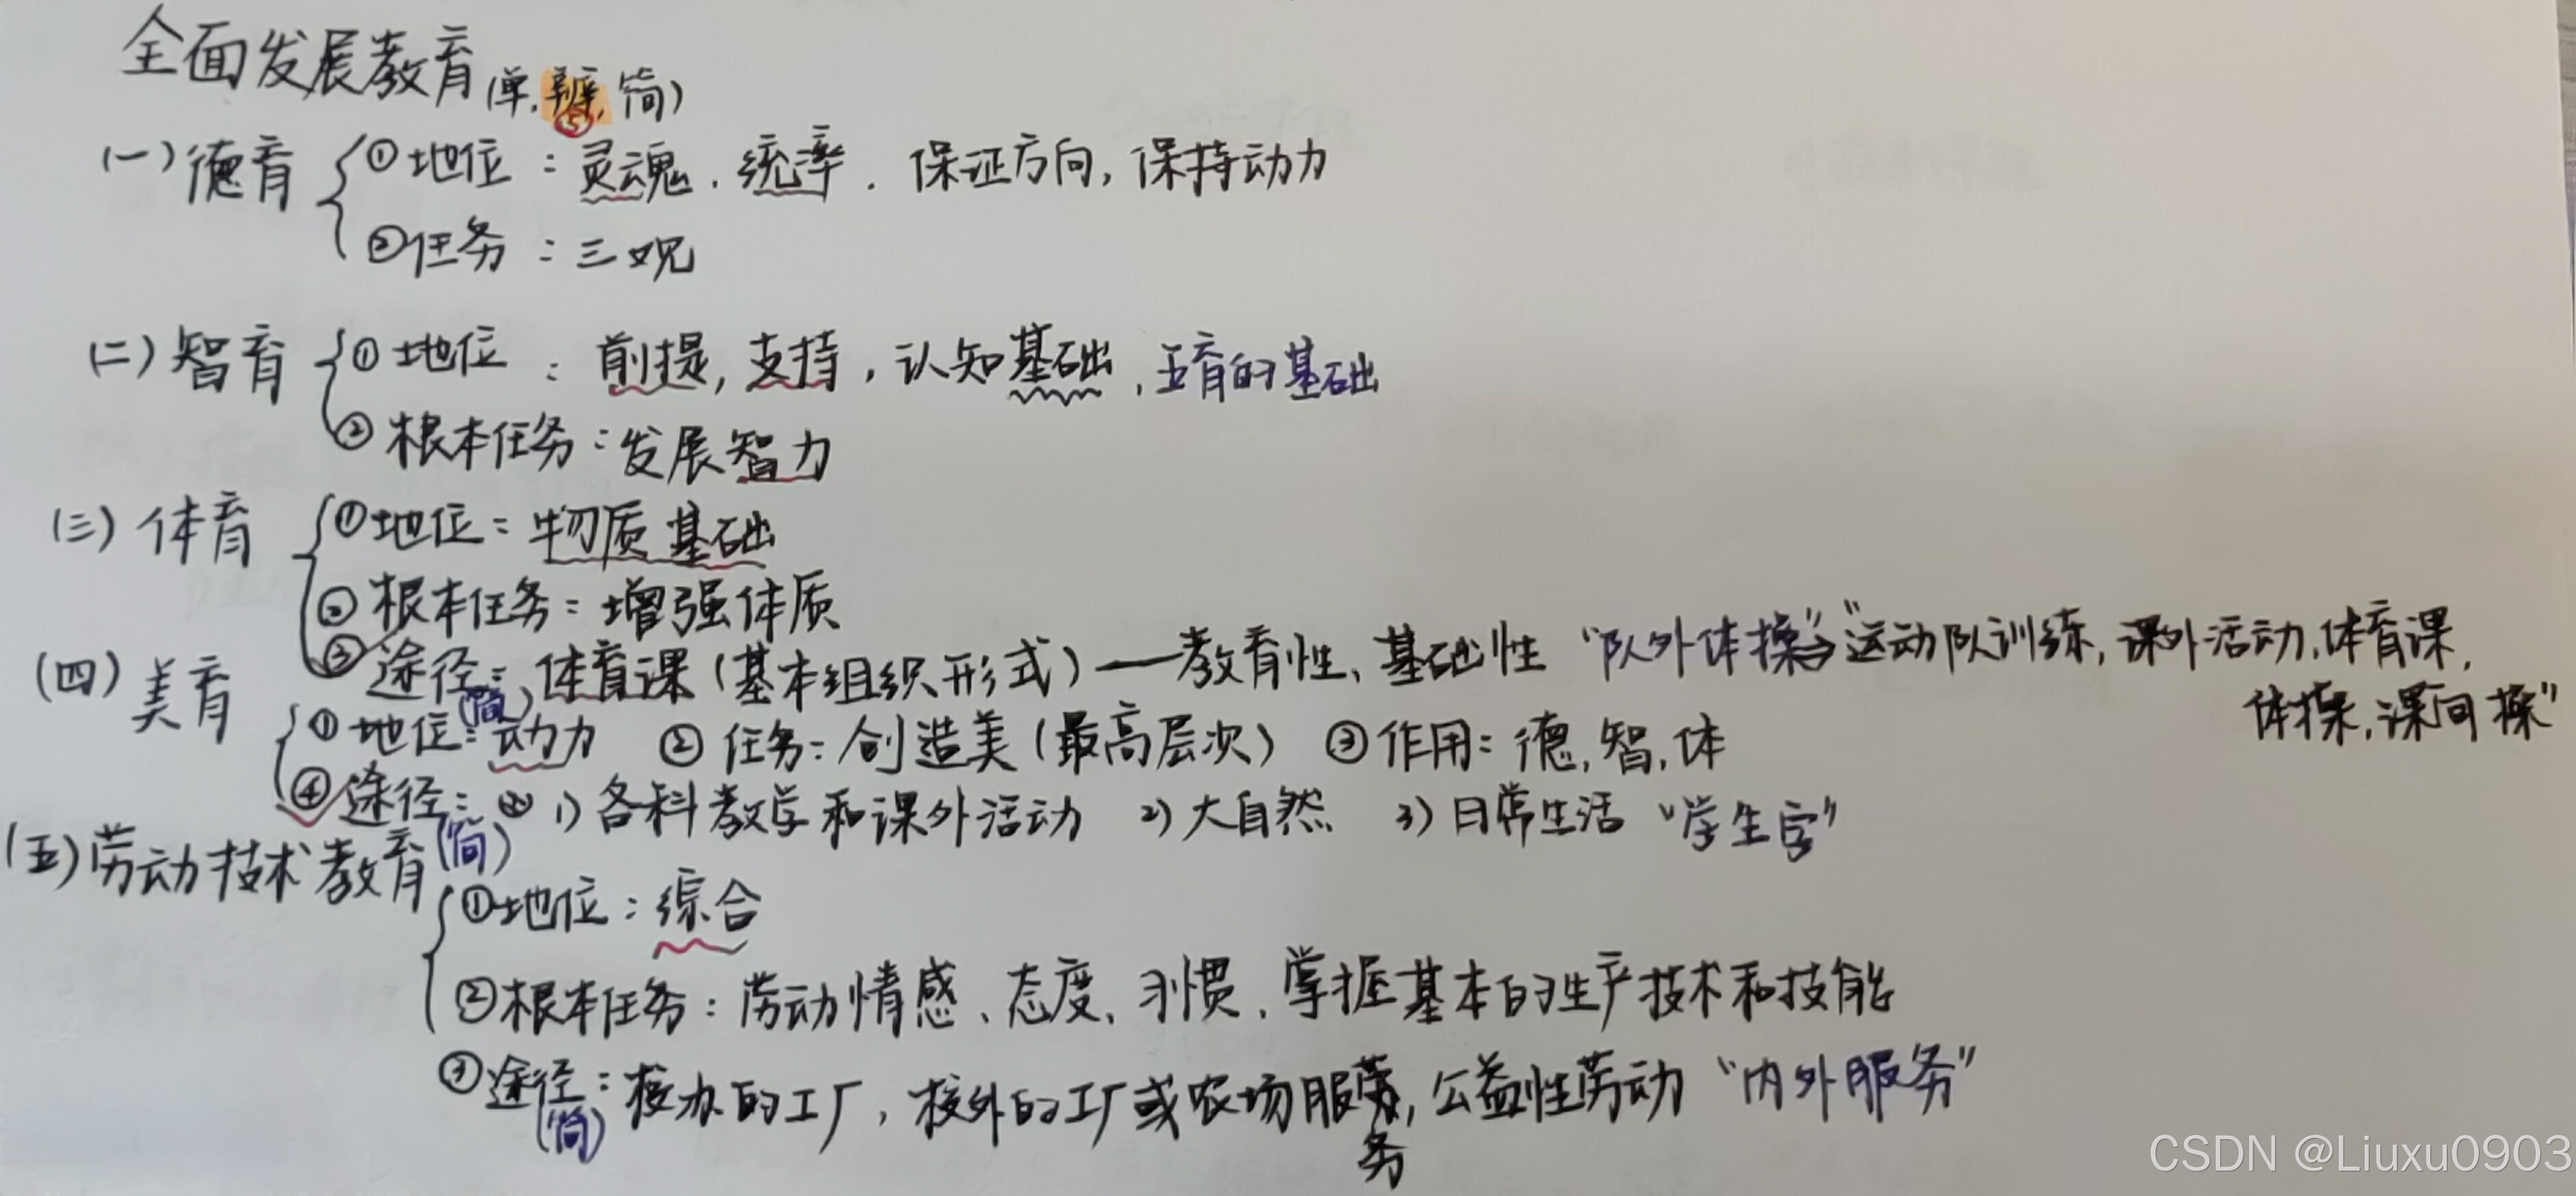 全面发展教育(单,辨,简)
⑤
(一)德育 ①地位：灵魂．统率．保证方向,保持动力
②任务：三观
(二)智育 ①地位：前提,支持,认知基础,五育的基础
②根本任务：发展智力
(三)体育 ①地位：物质基础
②根本任务：增强体质
③途径：体育课(基本组织形式)——教育性、基础性 "队外体操"→"运动队训练,课外活动,体育课,
体操,课间操"
(简)
(四)美育 ①地位：动力 ②任务：创造美(最高层次) ③作用：德,智,体
④途径：1)各科教学和课外活动 2)大自然 3)日常生活 "学生字"
(简)
(五)劳动技术教育 ①地位：综合
②根本任务：劳动情感、态度、习惯,掌握基本的生产技术和技能
③途径：校办的工厂,校外的工厂或农场服务,公益性劳动 "内外服务"
(简)
CSDN @Liuxu0903